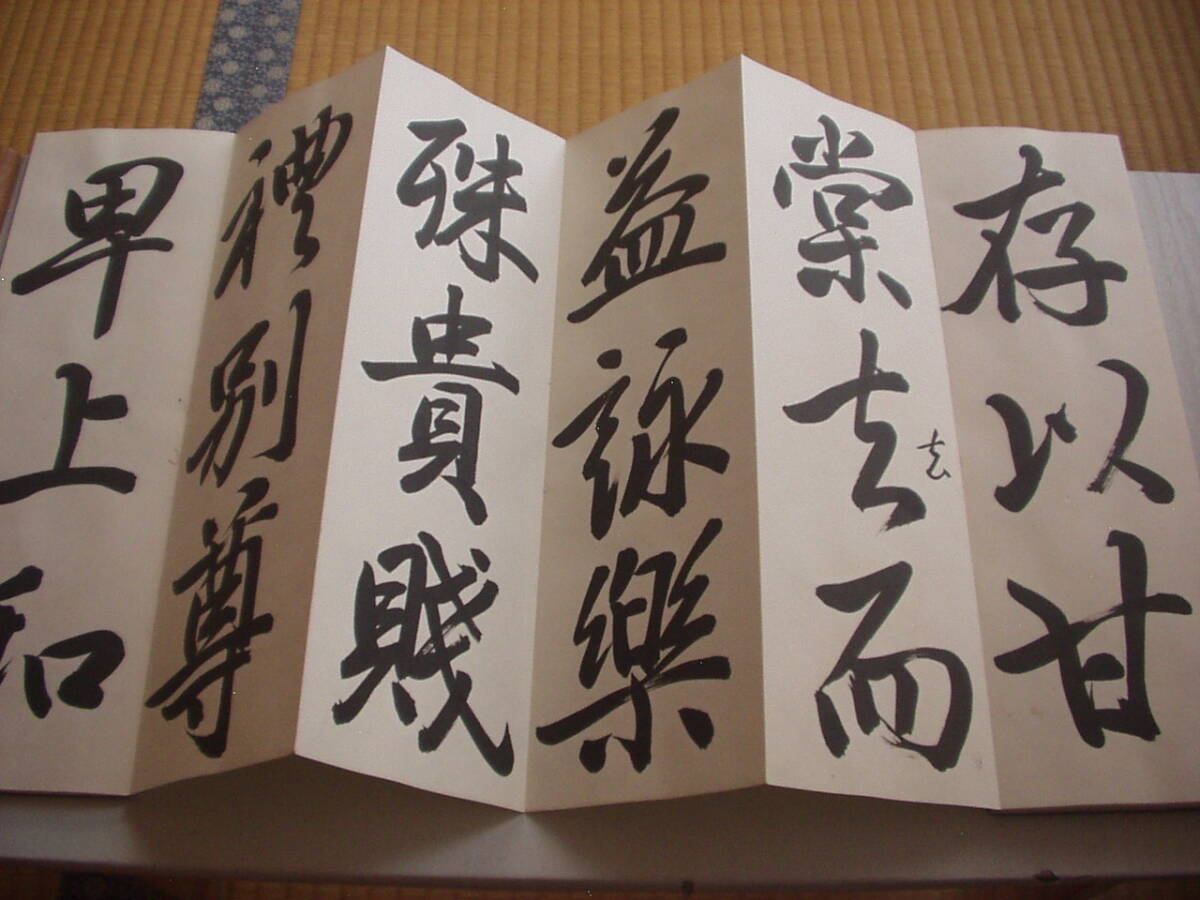 存以甘
棠去而
去
益詠樂
殊貴賤
禮別尊
卑上和